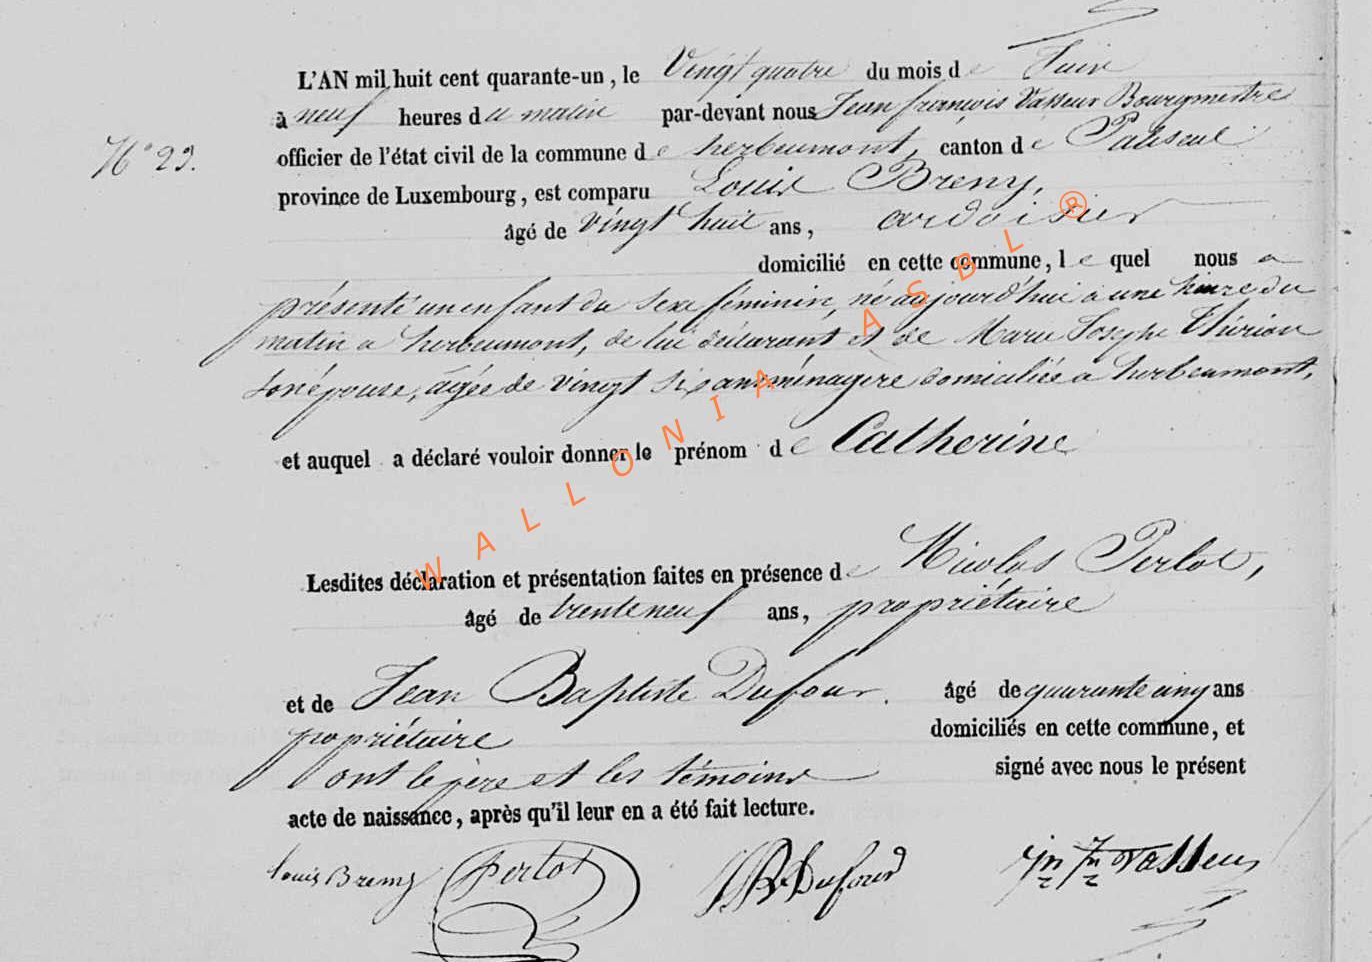 L'AN mil huit cent quarante-un, le Vingt quatre du mois de Juin
à neuf heures du matin par-devant nous Jean françois Vasseur Bourgmestre
N° 23. officier de l'état civil de la commune de herbeumont, canton de Paliseul
province de Luxembourg, est comparu Louis Breny,
âgé de vingt huit ans, ardoisier
domicilié en cette commune, lequel nous a
présenté un enfant du sexe féminin, né aujourd'hui à une heure du
matin a herbeumont, de lui déclarant et de Marie Josephe Thirion
son épouse, âgée de vingt six ans ménagere domiciliée a herbeumont,
et auquel a déclaré vouloir donner le prénom de Catherine
Lesdites déclaration et présentation faites en présence de Nicolas Perlot,
âgé de trente neuf ans, propriétaire
et de Jean Baptiste Dufour. âgé de quarante cinq ans
propriétaire domiciliés en cette commune, et
ont le père et les témoins signé avec nous le présent
acte de naissance, après qu'il leur en a été fait lecture.
Louis Breny Perlot JB Dufour Jn Fn Vasseur
WALLONIA ASBL ®